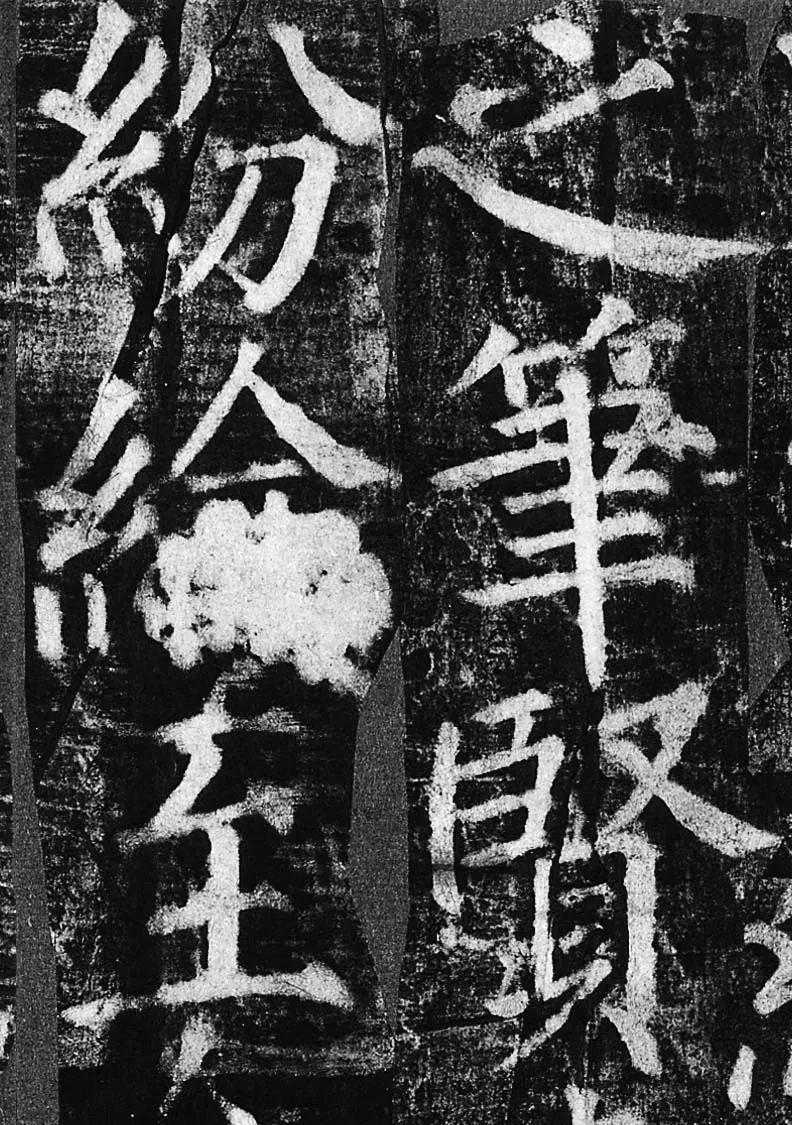 之筆賢
紛綸至